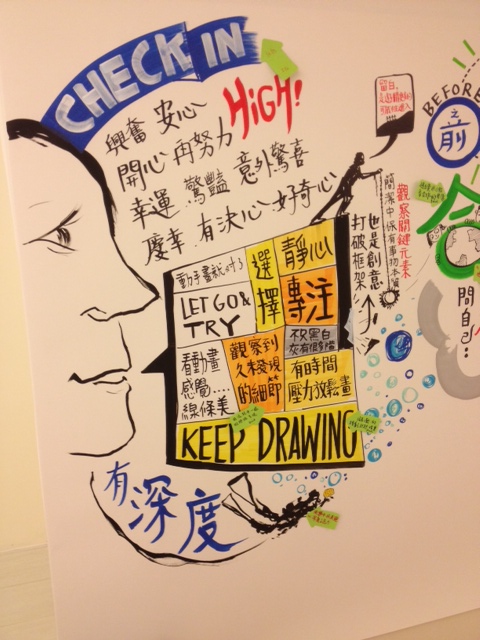 CHECK IN
HIGH!
興奮 安心
開心 再努力
幸運 驚豔 意外驚喜
慶幸 有決心 好奇心
留白,
BEFORE
之前
觀察關鍵元素
簡潔中 保有事物本質
也是創意
打破框架
問自己:
動手畫就對了
選擇
靜心
LET GO &
TRY
專注
看動畫
感覺....
線條美
觀察到
久未發現
的細節
不只黑白
有時間
壓力放鬆畫
KEEP DRAWING
有深度